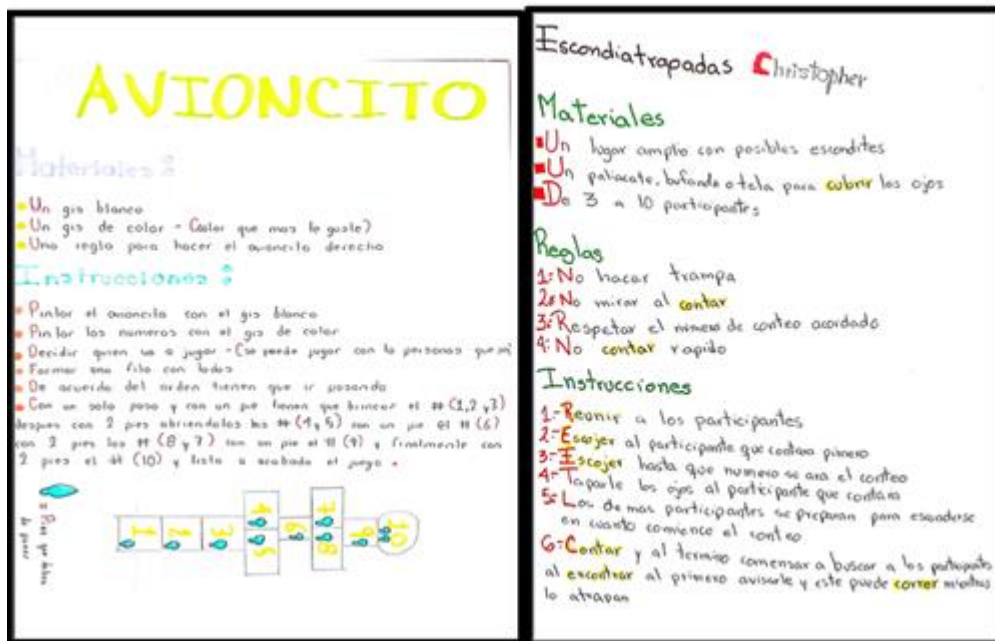 AVIONCITO
Materiales :
Un gis blanco
Un gis de color - (Color que mas le guste)
Una regla para hacer el avioncito derecho
Instrucciones :
Pintar el avioncito con el gis blanco
Pintar los numeros con el gis de color
Decidir quien va a jugar - (se puede jugar con la personas que
Formar una fila con todos
De acuerdo del orden tienen que ir pasando
Con un solo paso y con un pie tienen que brincar el # (1,2 y 3)
despues con 2 pies abriendolos los # (4 y 5) con un pie el # (6)
con 2 pies los # (8 y 7) con un pie el # (9) y finalmente con
2 pies el # (10) y listo a acabado el juego .
= Pies que deben
de poner
1 2 3 4 5 6 7 8 9 10
Escondiatrapadas Christopher
Materiales
Un lugar amplio con posibles escondites
Un paliacate, bufanda o tela para cubrir los ojos
De 3 a 10 participantes
Reglas
1: No hacer trampa
2: No mirar al contar
3: Respetar el numero de conteo acordado
4: No contar rapido
Instrucciones
1.- Reunir a los participantes
2.- Escojer al participante que contara
3.- Escojer hasta que numero se ara el conteo
4.- Taparle los ojos al participante que contara
5.- Los de mas participantes se preparan para esconderse
en cuanto comience el conteo
6.- Contar y al termino comensar a buscar a los participants
al encontrar al primero avisarle y este puede correr mientras
lo atrapan